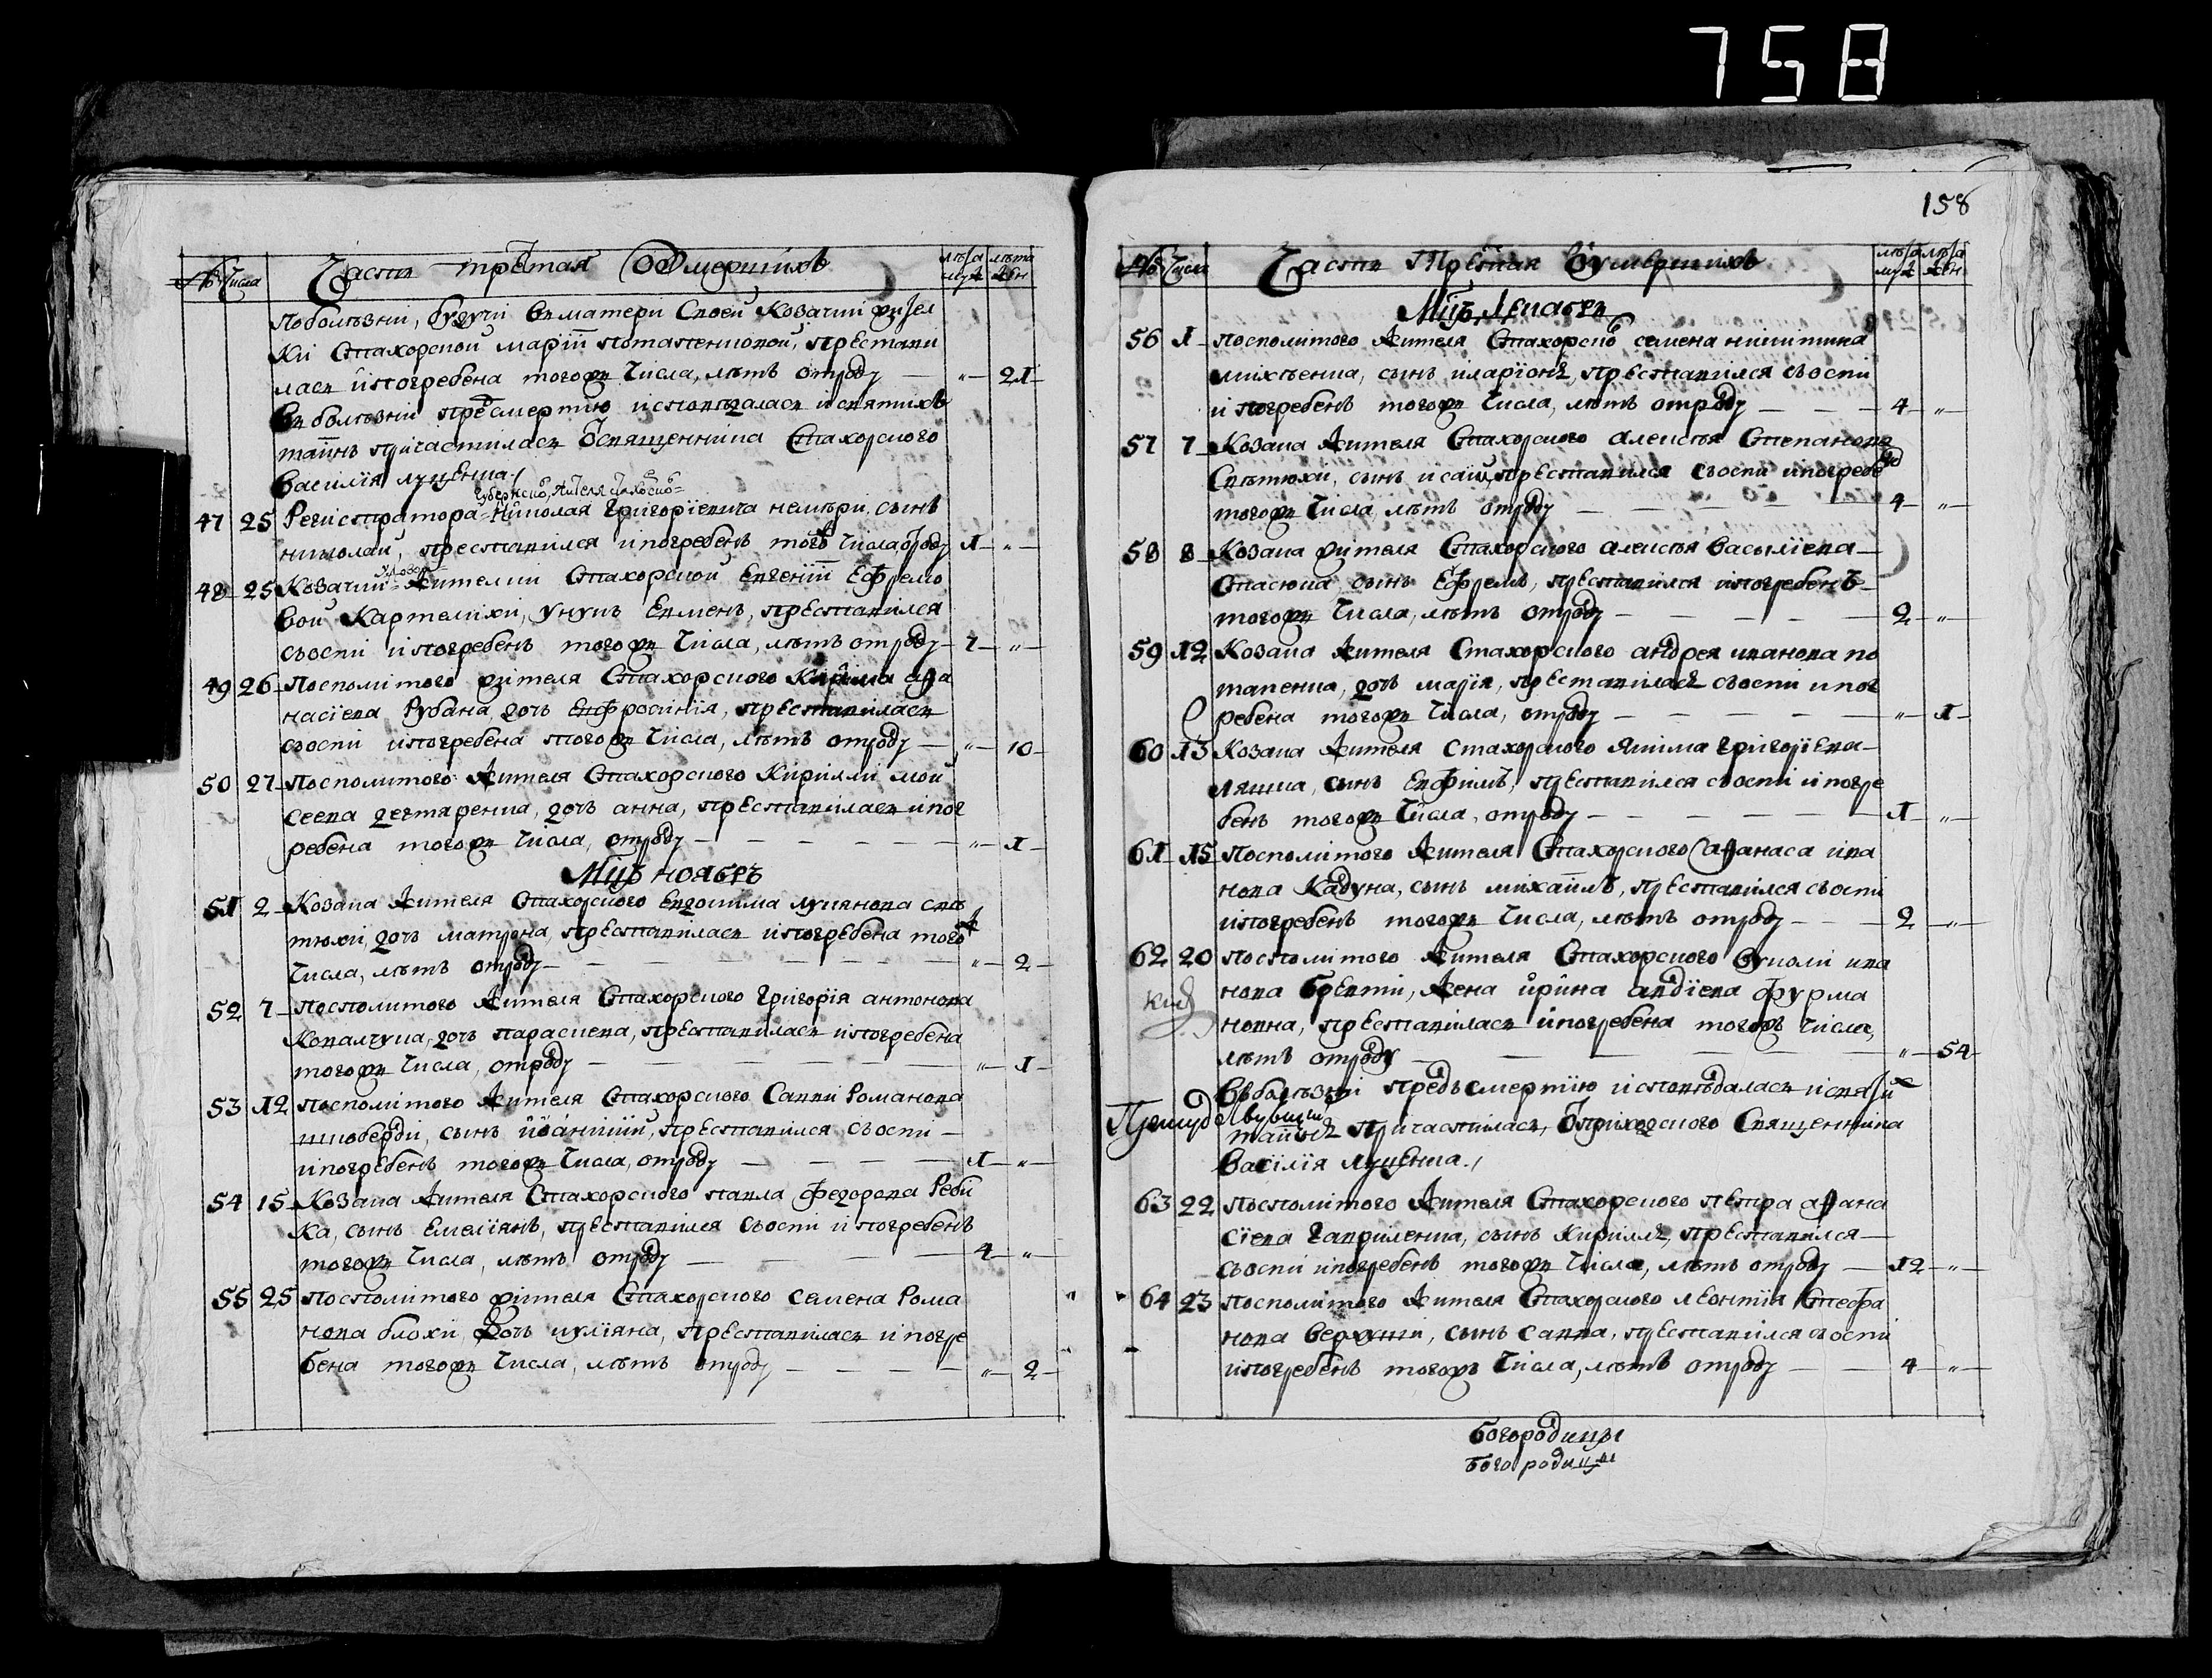 758
№ Числа Часть третая О Умершихъ лѣта муж лѣта жен
по болѣзни, будучи въ матери своей козачки жител
ки Стахорской Маріи Потапенковой, престави
лась и погребена того жъ числа, лѣтъ отроду — " — 21
Въ болѣзни предъ смертію исповѣдалась и святихъ
таинъ причастилась у священника Стахорского
Василія Луценка.
47 25 Регистратора Николая Григоріевича сынъ
николай, преставился и погребенъ того жъ числа отроду 1 — "
48 25 Козачки жителки Стахорской Евгеніи Ефремо
вой Картелихи, унукъ Евменъ, преставился
съоспи и погребенъ того жъ числа, лѣтъ отроду — 7 — "
49 26 Посполитого жителя Стахорского Кирила афа
насіева Рубана, дочъ Евфросинія, преставилась
съоспи и погребена того жъ числа, лѣтъ отроду — " — 10
50 27 Посполитого жителя Стахорского Кирилли мой
сеева дегтяренка, дочъ анна, преставилась и пог
ребена того жъ числа, отроду — " — 1
Мць ноябрь
51 2 Козака жителя Стахорского Евдокима лукянова свѣ
тюхи, дочъ матрона, преставилась и погребена того жъ
числа, лѣтъ отроду — " — 2
52 7 посполитого жителя Стахорского григорія антонова
Ковалчука, дочъ параскева, преставилась и погребена
того жъ числа, отроду — " — 1
53 12 посполитого жителя Стахорского Саввы Романова
шкоберди, сынъ іоанникій, преставился съоспи —
и погребенъ того жъ числа, отроду — 1 — "
54 15 Козака жителя Стахорского павла федорова Реби
ка, сынъ Емеліянъ, преставился съоспи и погребенъ
того жъ числа, лѣтъ отроду — 4 — "
55 25 посполитого жителя Стахорского семена Рома
нова блохи, дочъ иуліяна, преставилась и погре
бена того жъ числа, лѣтъ отроду — " — 2
158
№ Числа Часть Третая О умершихъ лѣта муж лѣта жен
Мць Декабрь
56 1 посполитого жителя Стахорского семена никитина
михѣенка, сынъ иларіонъ, преставился съоспи
и погребенъ того жъ числа, лѣтъ отроду — 4 — "
57 7 Козака жителя Стахорского алексѣя Степанова
Свѣтюхи, сынъ исаій, преставился съоспи и погребенъ
того жъ числа, лѣтъ отроду — 4 — "
58 8 Козака жителя Стахорского алексѣя васыліева
Стасюка, сынъ Ефремъ, преставился и погребенъ
того жъ числа, лѣтъ отроду — 2 — "
59 12 Козака жителя Стахорского андрея иванова по
тапенка, дочъ марія, преставилась съоспи и пог
ребена того жъ числа, отроду — " — 1
60 13 Козака жителя Стахорского якима григоріева
ляшка, сынъ Евфимъ, преставился съоспи и погре
бенъ того жъ числа, отроду — 1 — "
61 15 посполитого жителя Стахорского афанаса ива
нова Кадуна, сынъ михаилъ, преставился съоспи
и погребенъ того жъ числа, лѣтъ отроду — 2 — "
62 20 посполитого жителя Стахорского вуколи ива
нова Бревти, жена ирина авдіева фурма
новна, преставилась и погребена того жъ числа,
лѣтъ отроду — " — 54
въ болѣзни предъ смертію исповѣдалась и святихъ
таинъ причастилась, у приходского священника
Василія луценка.
63 22 посполитого жителя Стахорского петра афана
сіева гавриленка, сынъ Кириллъ, преставился —
съоспи и погребенъ того жъ числа, лѣтъ отроду — 12 — "
64 23 посполитого жителя Стахорского леонтія Стефа
нова верхуни, сынъ савва, преставился съоспи
и погребенъ того жъ числа, лѣтъ отроду — 4 — "
богородицы
богородицы